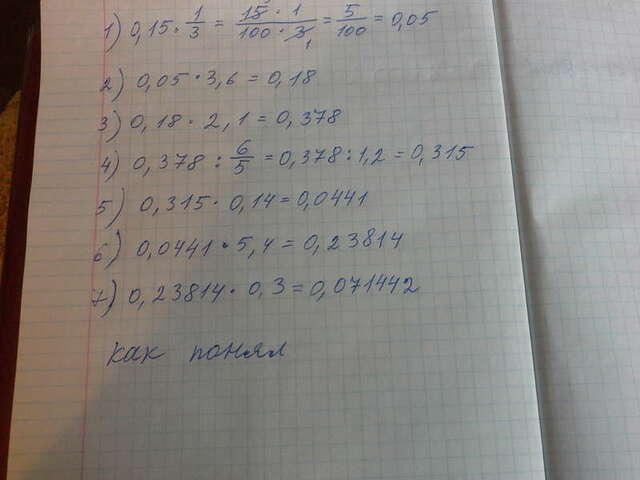 1) 0,15 · 1/3 = 15 · 1 / 100 · 3 1 = 5/100 = 0,05
2) 0,05 · 3,6 = 0,18
3) 0,18 · 2,1 = 0,378
4) 0,378 : 6/5 = 0,378 : 1,2 = 0,315
5) 0,315 · 0,14 = 0,0441
6) 0,0441 · 5,4 = 0,23814
7) 0,23814 · 0,3 = 0,071442
как понял